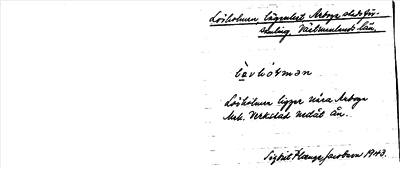 Lövholmen lägenhet Arboga stads för-
samling, Västmanlands län.
lö̀vhòlmən
Lövholmen ligger nära Arboga
Mek. Verkstad nedåt ån.
Sigrid Jacobson 1943.